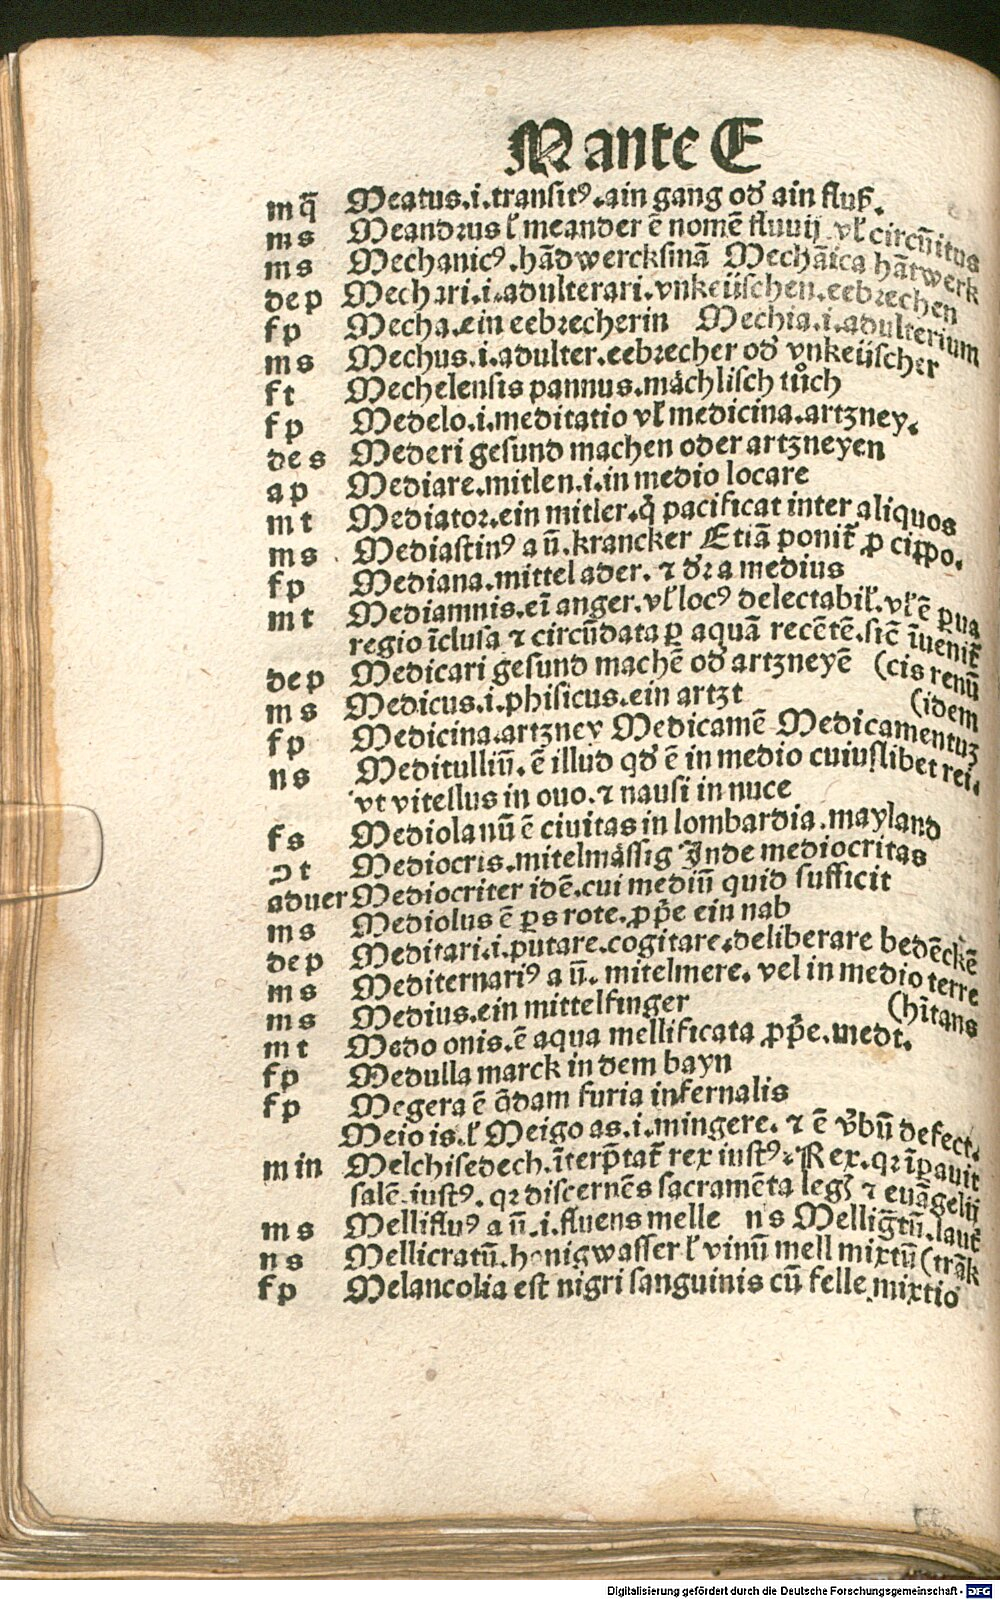 M ante E
m q̄ Meatus.i.transitꝰ.ain gang od' ain fluß.
m s Meandrus ł meander ē nomē fluuij vł circūitus
m s Mechanicꝰ.hādwercksmā Mechāica hātwerk
dep Mechari.i.adulterari.vnkeüschen.eebrechen
f p Mecha.ein eebrecherin Mechia.i.adulterium
m s Mechus.i.adulter.eebrecher od' vnkeüscher
f t Mechelensis pannus.mächlisch tůch
f p Medelo.i.meditatio vł medicina.artzney.
de s Mederi gesund machen oder artzneyen
a p Mediare.mitlen.i.in medio locare
m t Mediator.ein mitler.q̇ pacificat inter aliquos
m s Mediastinꝰ a ū.krancker Etiā ponit̄ ꝓ cippo.
f p Mediana.mittel ader. ⁊ d'r a medius
m t Mediamnis.eī anger.vł locꝰ delectabił.vł ē ꝑua
regio īclusa ⁊ circūdata ꝑ aquā recētē.sīc īuenit̄
dep Medicari gesund machē od' artzneyē (cis renū
m s Medicus.i.phisicus.ein artzt (idem
f p Medicina.artzney Medicamē Medicamentuꝫ
n s Meditulliū.ē illud qd' ē in medio cuiuslibet rei.
vt vitellus in ouo.⁊ nausi in nuce
f s Mediolanū ē ciuitas in lombardia.mayland
ꝯ t Mediocris.mitelmässig Inde mediocritas
aduer Mediocriter idē.cui mediū quid sufficit
m s Mediolus ē ꝑs rote.ꝓpē ein nab
dep Meditari.i.putare.cogitare.deliberare bedēckē
m s Mediternariꝰ a ū. mitelmere. vel in medio terre
m s Medius.ein mittelfinger (hītans
m t Medo onis.ē aqua mellificata ꝓpē.medt.
f p Medulla marck in dem bayn
f p Megera ē q̄dam furia infernalis
Meio is.ł Meigo as.i.mingere. ⁊ ē v'bū defect.
m in Melchisedech.īterp̄tat̄ rex iustꝰ ⁊ Rex.qꝛ īꝑauit
salē iustꝰ. qꝛ discernēs sacramēta legꝭ ⁊ euāgelij
m s Mellifluꝰ a ū.i.fluens melle n s Mellig̈tū.laut̄
n s Mellicratū.honigwasser ł vinū mell mixtū (trāk
f p Melancolia est nigri sanguinis cū felle mixtio
Digitalisierung gefördert durch die Deutsche Forschungsgemeinschaft - DFG